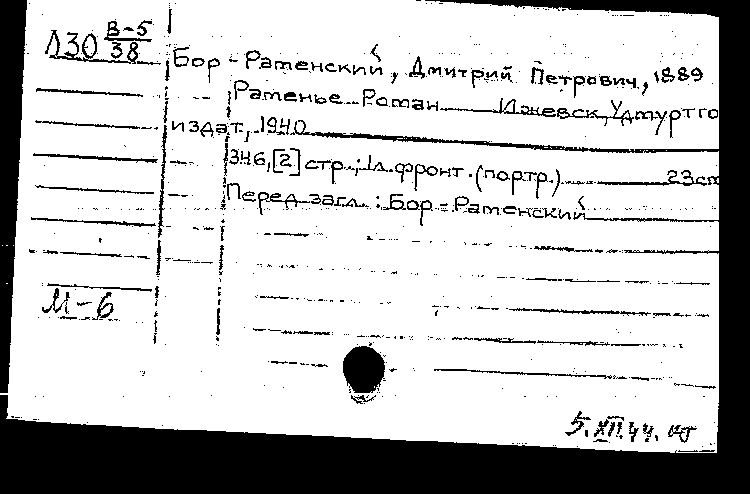 Д30 В-5
38
Бор-Раменский, Дмитрий Петрович, 1889
Раменье. Роман Ижевск, Удмуртго
издат, 1940
346, [2] стр.; 1 л. фронт. (портр.) 23см
Перед загл.: Бор-Раменский
М-6
5.XII.44.